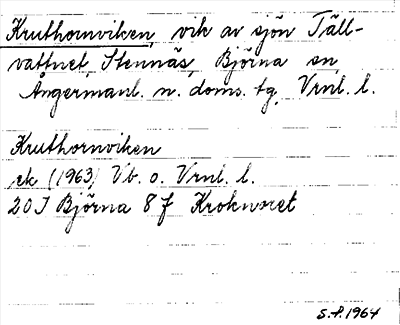 Kruthornviken, vik av sjön Täll-
vattnet, Stennäs, Björna sn,
Ångermanl. n. doms. tg, Vrnl. l.
Kruthornviken
ek (1963) Vb. o. Vrnl. l.
20 J Björna 8 f Kroknoret
S.P. 1964